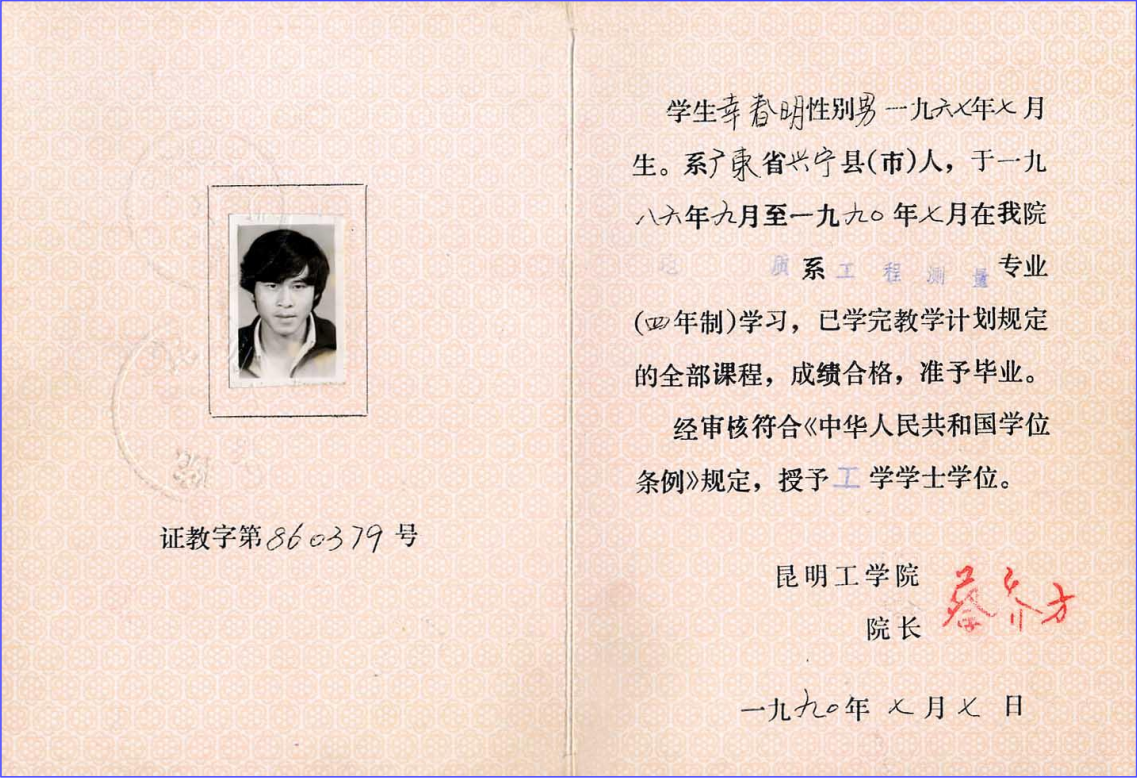 证教字第860379号
学生幸春明性别男一九六七年七月
生。系广东省兴宁县(市)人，于一九
八六年九月至一九九〇年七月在我院
地 质系工程测量专业
(四年制)学习，已学完教学计划规定
的全部课程，成绩合格，准予毕业。
经审核符合《中华人民共和国学位
条例》规定，授予工学学士学位。
昆明工学院
院长 蔡乔方
一九九〇年七月七日